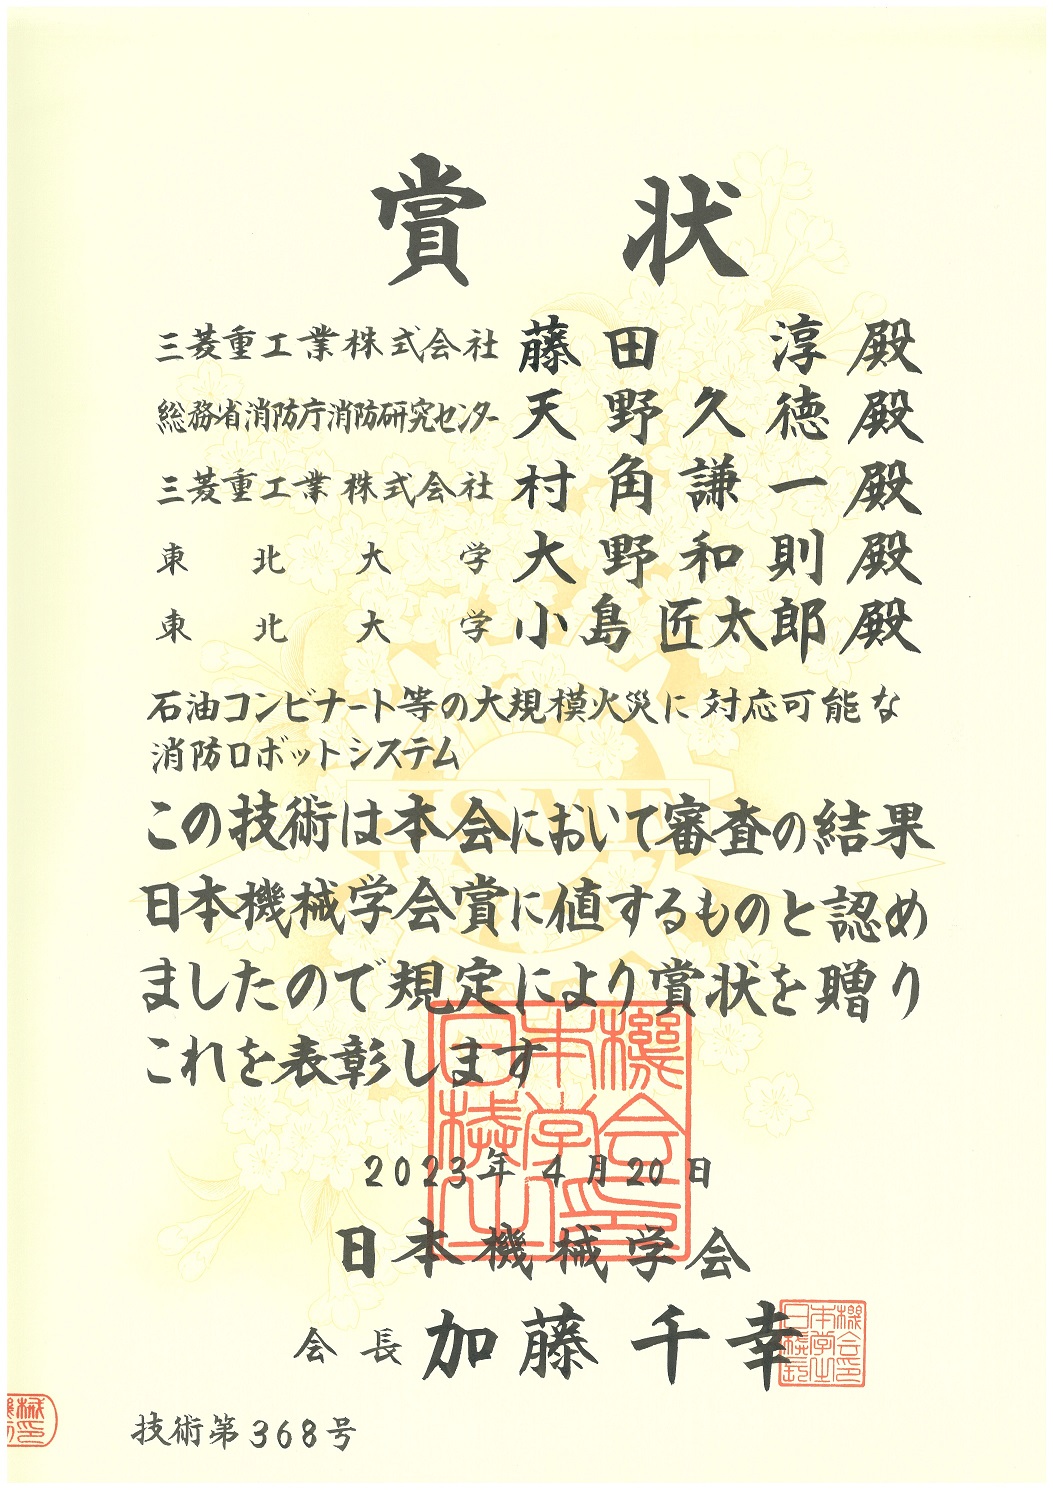 賞状
三菱重工業株式会社 藤田 淳 殿
総務省消防庁消防研究センター 天野久徳 殿
三菱重工業株式会社 村角謙一 殿
東北大学 大野和則 殿
東北大学 小島匠太郎 殿
石油コンビナート等の大規模火災に対応可能な
消防ロボットシステム
この技術は本会において審査の結果
日本機械学会賞に値するものと認め
ましたので規定により賞状を贈り
これを表彰します
2023年4月20日
日本機械学会
会長 加藤千幸
技術第368号
JSME